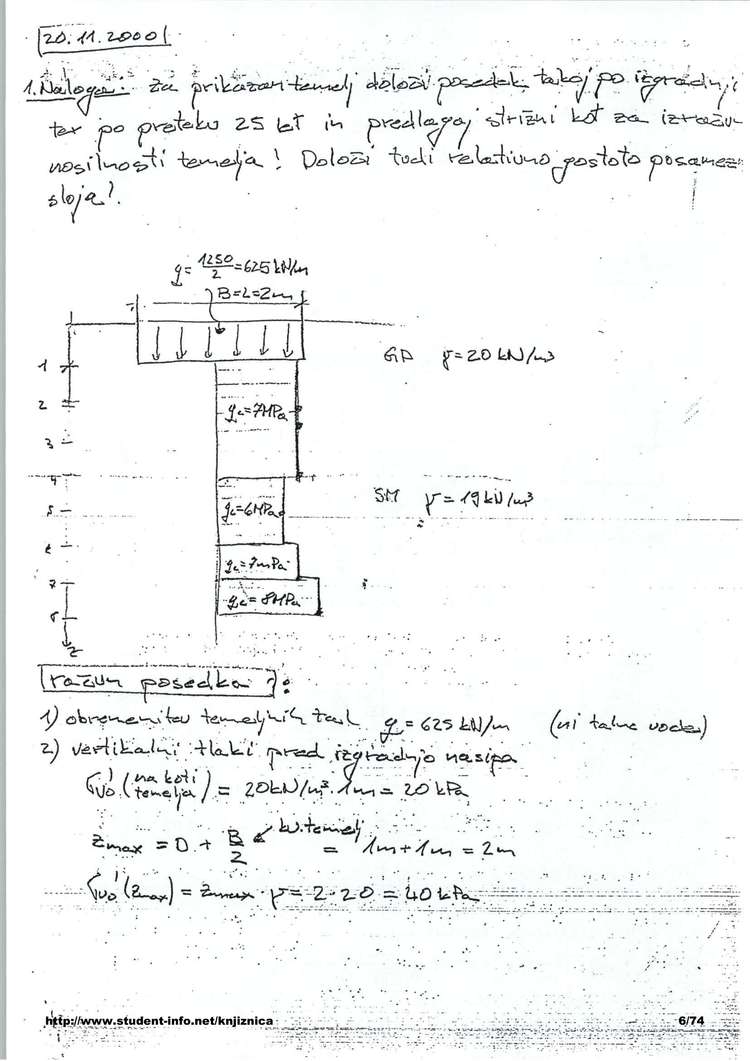 20.11.2000
1. Naloga: Za prikazan temelj določi posedek takoj po izgradnji
ter po preteku 25 let in predlagaj strižni kot za izračun
nosilnosti temelja! Določi tudi relativno gostoto posamez
sloja!
q = 1250/2 = 625 kN/m
B=L=2m
1
GP γ = 20 kN/m³
2
qc=7MPa
3
4
SM γ = 19 kN/m³
5
qc=6MPa
6
qc=7MPa
7
qc=8MPa
8
z
račun posedka:
1) obremenitev temeljnih tal q = 625 kN/m (ni talne vode)
2) vertikalni tlaki pred izgradnjo nasipa
σ'vo (na koti temelja) = 20kN/m³·1m = 20 kPa
zmax = D + B/2 ← kv. temelj = 1m+1m = 2m
σ'vo (zmax) = zmax · γ = 2·20 = 40 kPa
http://www.student-info.net/knjiznica
6/74